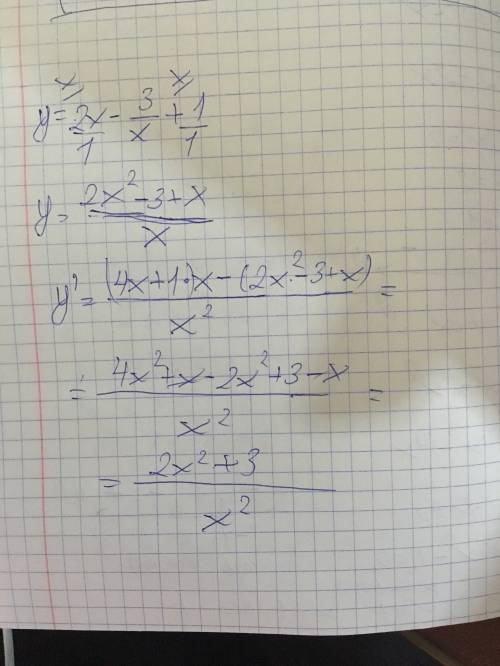 y = 2x/1 - 3/x + 1/1
y = (2x² - 3 + x)/x
y' = ((4x + 1)·x - (2x² - 3 + x))/x² =
= (4x² + x - 2x² + 3 - x)/x² =
= (2x² + 3)/x²